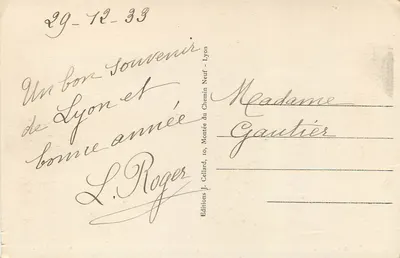 29-12-33
Un bon souvenir
de Lyon et
bonne année
L. Roger
Editions J. Cellard, 10, Montée du Chemin Neuf - Lyon
Madame
Gautier